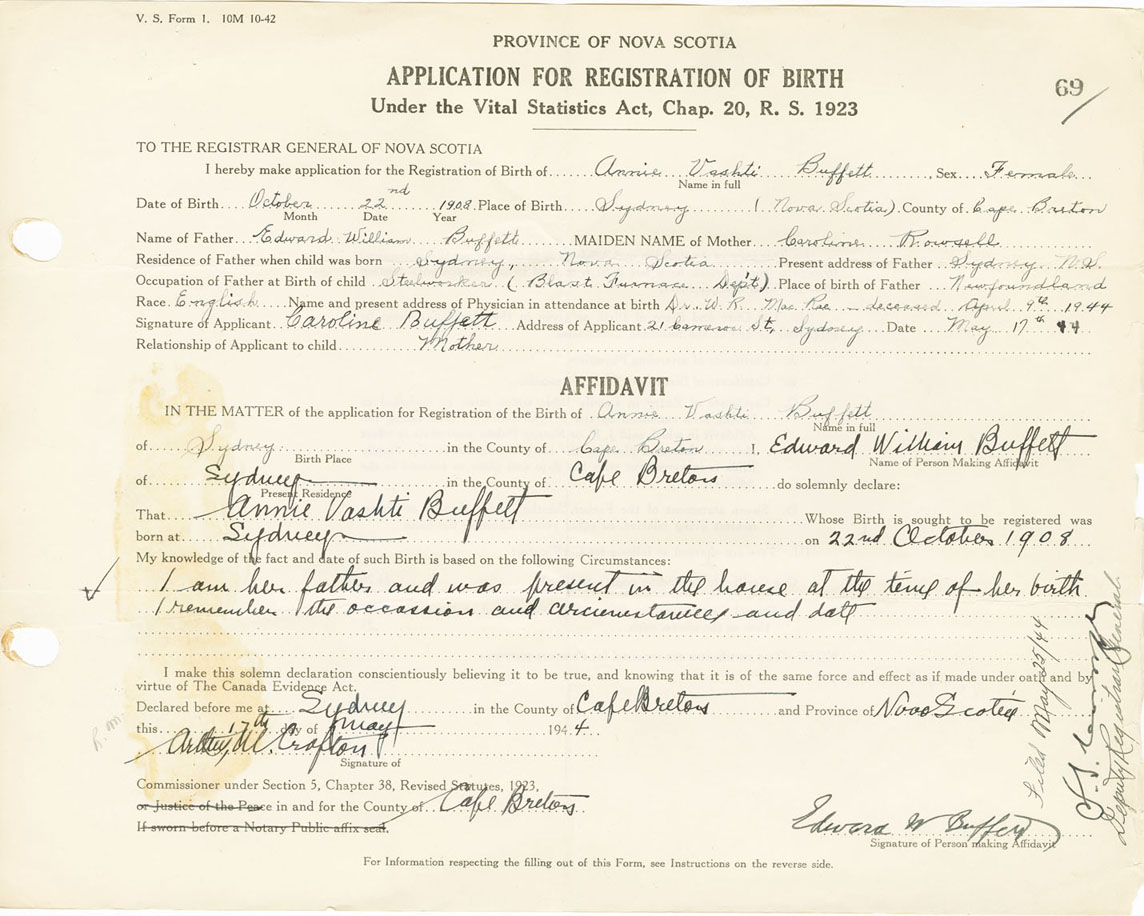 V. S. Form 1. 10M 10-42
PROVINCE OF NOVA SCOTIA
APPLICATION FOR REGISTRATION OF BIRTH
69
Under the Vital Statistics Act, Chap. 20, R. S. 1923
TO THE REGISTRAR GENERAL OF NOVA SCOTIA
I hereby make application for the Registration of Birth of Annie Vashti Buffett, Sex Female
Name in full
Date of Birth October 22nd 1908 Place of Birth Sydney (Nova Scotia) County of Cape Breton
Month Date Year
Name of Father Edward William Buffett MAIDEN NAME of Mother Caroline Rowsell
Residence of Father when child was born Sydney, Nova Scotia Present address of Father Sydney N.S.
Occupation of Father at Birth of child Steelworker (Blast Furnace Dep't) Place of birth of Father Newfoundland
Race English Name and present address of Physician in attendance at birth Dr. W. R. Mac Rae - deceased April 9th 1944
Signature of Applicant Caroline Buffett Address of Applicant 21 Cameron St, Sydney Date May 17th 44
Relationship of Applicant to child Mother
AFFIDAVIT
IN THE MATTER of the application for Registration of the Birth of Annie Vashti Buffett
Name in full
of Sydney in the County of Cape Breton I, Edward William Buffett
Birth Place Name of Person Making Affidavit
of Sydney in the County of Cape Breton do solemnly declare:
Present Residence
That Annie Vashti Buffett Whose Birth is sought to be registered was
born at Sydney on 22nd October 1908
My knowledge of the fact and date of such Birth is based on the following Circumstances:
I am her father and was present in the house at the time of her birth
I remember the occassion and circumstances and date
I make this solemn declaration conscientiously believing it to be true, and knowing that it is of the same force and effect as if made under oath and by
virtue of The Canada Evidence Act.
Declared before me at Sydney in the County of Cape Breton and Province of Nova Scotia
this 17th day of May 1944
Arthur M. Crofton
Signature of
Commissioner under Section 5, Chapter 38, Revised Statutes, 1923,
or Justice of the Peace in and for the County of Cape Breton
If sworn before a Notary Public affix seal.
Edward W Buffett
Signature of Person making Affidavit
For Information respecting the filling out of this Form, see Instructions on the reverse side.
Filed May 25/44
Deputy Registrar General